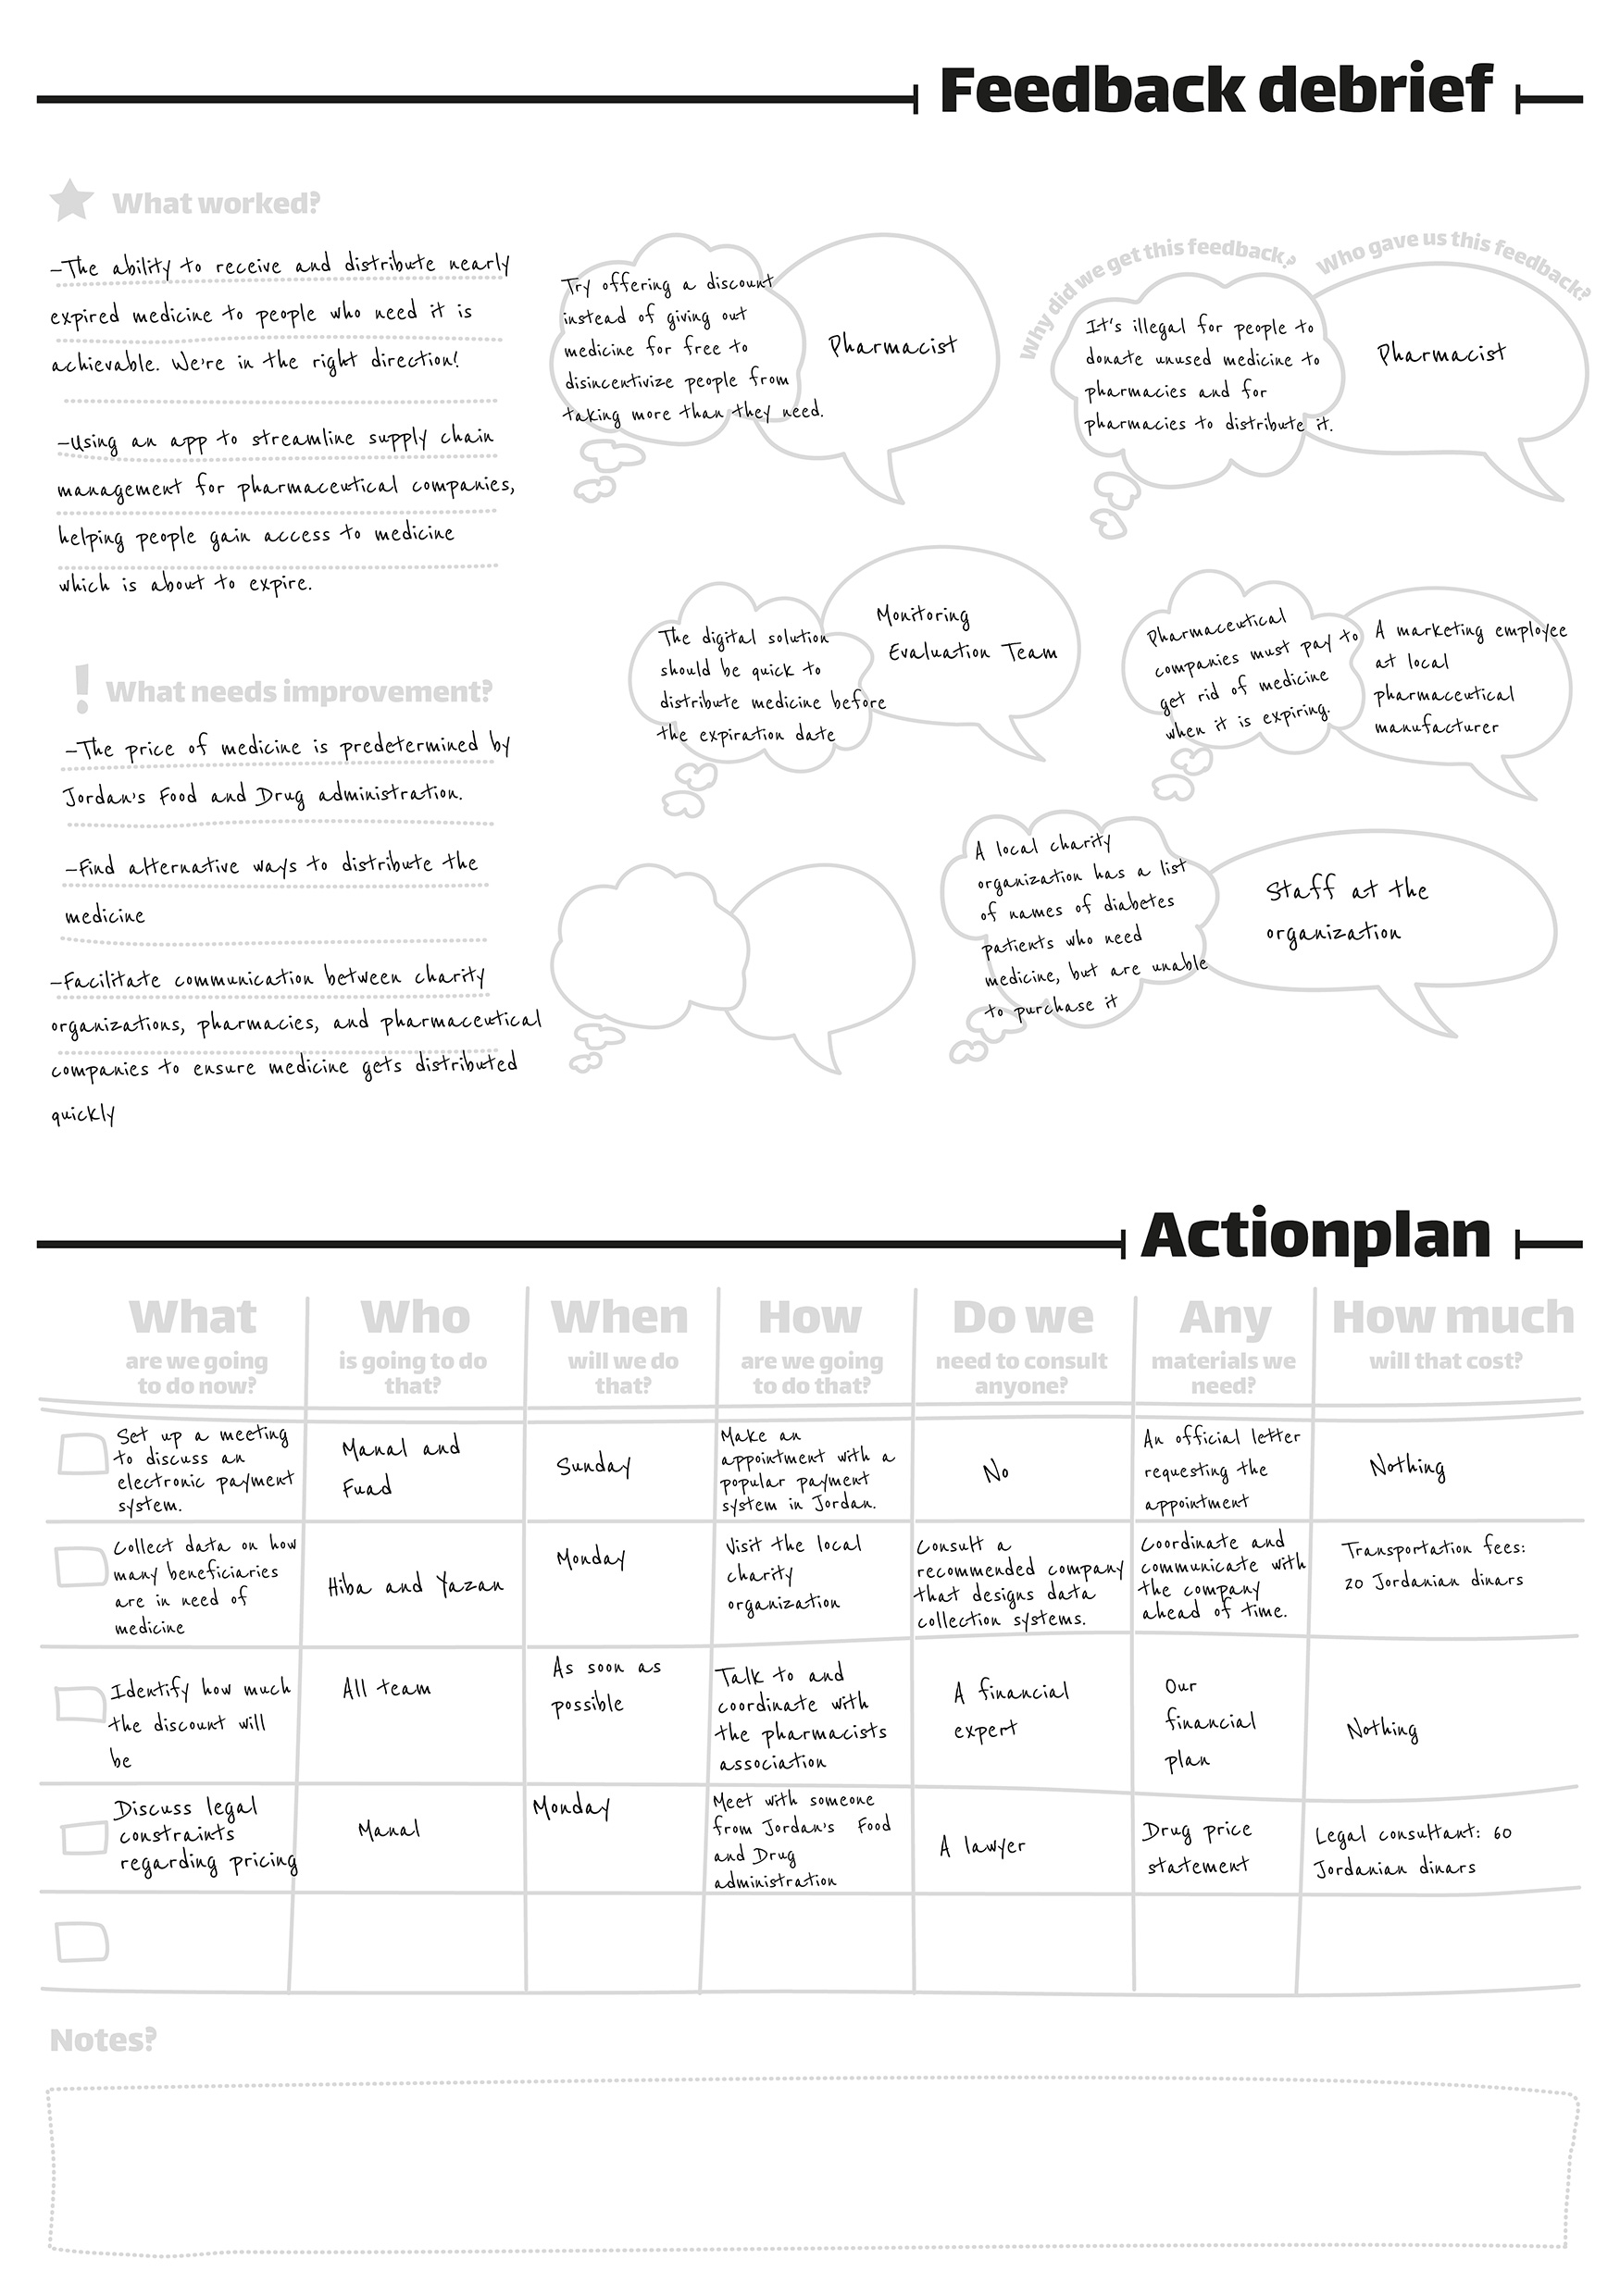 Feedback debrief
What worked?
-The ability to receive and distribute nearly
expired medicine to people who need it is
achievable. We're in the right direction!
-Using an app to streamline supply chain
management for pharmaceutical companies,
helping people gain access to medicine
which is about to expire.
! What needs improvement?
-The price of medicine is predetermined by
Jordan's Food and Drug administration.
-Find alternative ways to distribute the
medicine
-Facilitate communication between charity
organizations, pharmacies, and pharmaceutical
companies to ensure medicine gets distributed
quickly
Try offering a discount
instead of giving out
medicine for free to
disincentivize people from
taking more than they need.
Pharmacist
Why did we get this feedback?
Who gave us this feedback?
It's illegal for people to
donate unused medicine to
pharmacies and for
pharmacies to distribute it.
Pharmacist
The digital solution
should be quick to
distribute medicine before
the expiration date
Monitoring
Evaluation Team
Pharmaceutical
companies must pay to
get rid of medicine
when it is expiring.
A marketing employee
at local
pharmaceutical
manufacturer
A local charity
organization has a list
of names of diabetes
patients who need
medicine, but are unable
to purchase it
Staff at the
organization
Actionplan
What
are we going
to do now?
Who
is going to do
that?
When
will we do
that?
How
are we going
to do that?
Do we
need to consult
anyone?
Any
materials we
need?
How much
will that cost?
Set up a meeting
to discuss an
electronic payment
system.
Manal and
Fuad
Sunday
Make an
appointment with a
popular payment
system in Jordan.
No
An official letter
requesting the
appointment
Nothing
Collect data on how
many beneficiaries
are in need of
medicine
Hiba and Yazan
Monday
Visit the local
charity
organization
Consult a
recommended company
that designs data
collection systems.
Coordinate and
communicate with
the company
ahead of time.
Transportation fees:
20 Jordanian dinars
Identify how much
the discount will
be
All team
As soon as
possible
Talk to and
coordinate with
the pharmacists
association
A financial
expert
Our
financial
plan
Nothing
Discuss legal
constraints
regarding pricing
Manal
Monday
Meet with someone
from Jordan's Food
and Drug
administration
A lawyer
Drug price
statement
Legal consultant: 60
Jordanian dinars
Notes?